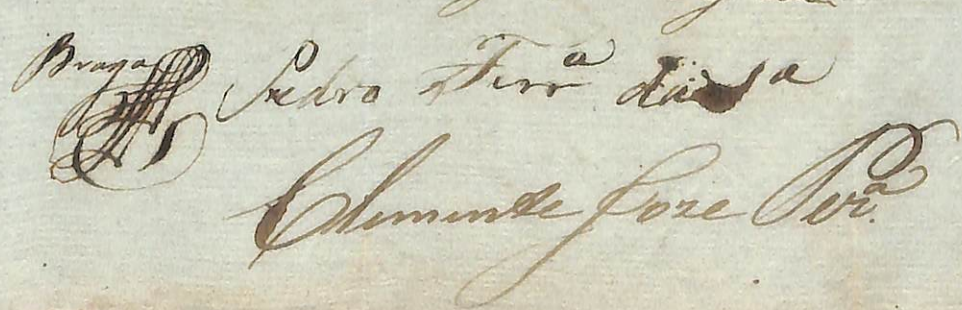 Braga Pedro Ferrª da Sª
Clemente Joze Perª